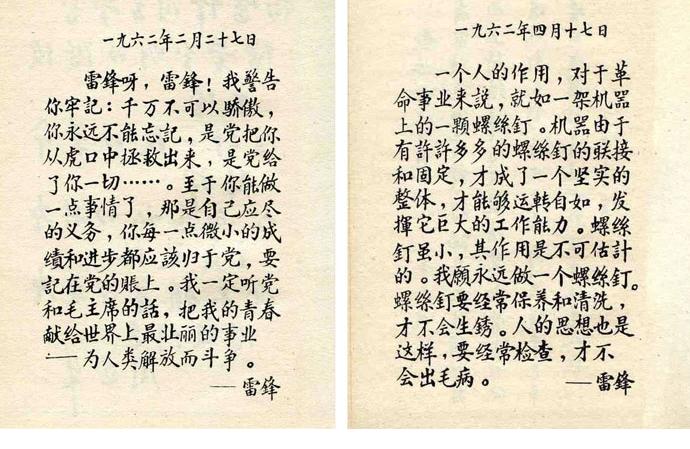 一九六二年二月二十七日
雷鋒呀，雷鋒！我警告
你牢記：千万不可以驕傲，
你永远不能忘記，是党把你
从虎口中拯救出来，是党給
了你一切……。至于你能做
一点事情了，那是自己应尽
的义务，你每一点微小的成
績和进步都应該归于党，要
記在党的賬上。我一定听党
和毛主席的話，把我的青春
献給世界上最壮丽的事业
——为人类解放而斗争。
——雷鋒
一九六二年四月十七日
一个人的作用，对于革
命事业来説，就如一架机器
上的一顆螺絲釘。机器由于
有許許多多的螺絲釘的联接
和固定，才成了一个坚实的
整体，才能够运转自如，发
揮它巨大的工作能力。螺絲
釘虽小，其作用是不可估計
的。我願永远做一个螺絲釘。
螺絲釘要经常保养和清洗，
才不会生銹。人的思想也是
这样，要经常检查，才不
会出毛病。
——雷鋒